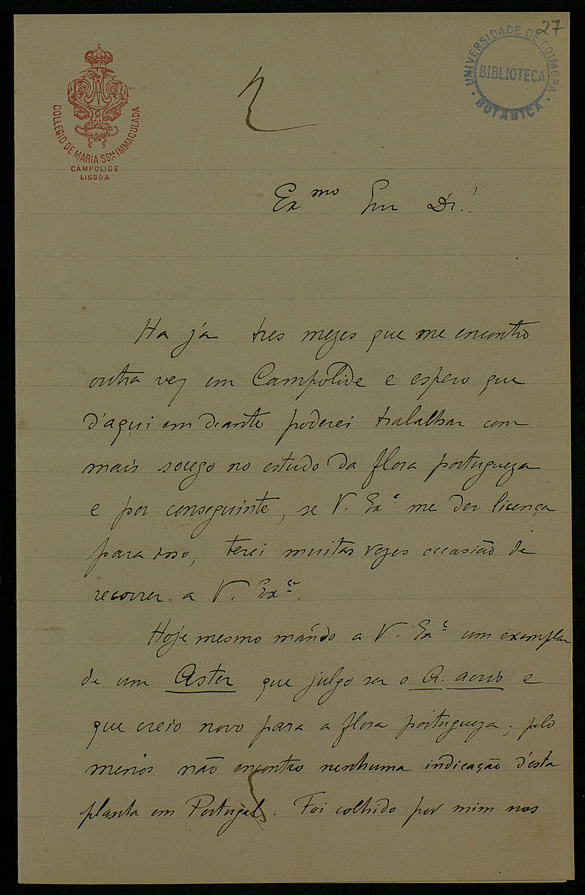 27
UNIVERSIDADE DE COIMBRA
BIBLIOTECA
BOTANICA
COLLEGIO DE MARIA SS.MA IMMACULADA
CAMPOLIDE
LISBOA
Ex.mo Snr Dr.!
Ha já tres mezes que me encontro
outra vez em Campolide e espero que
d'aqui em deante poderei trabalhar com
mais socego no estudo da flora portugueza
e por conseguinte, se V. Ex.ª me der licença
para isso, terei muitas vezes occasião de
recorrer a V. Ex.ª.
Hoje mesmo mando a V. Ex.ª um exemplar
de um Aster que julgo ser o A. acris e
que creio novo para a flora portugueza; pelo
menos não encontro nenhuma indicação d'esta
planta em Portugal. Foi colhido por mim nos